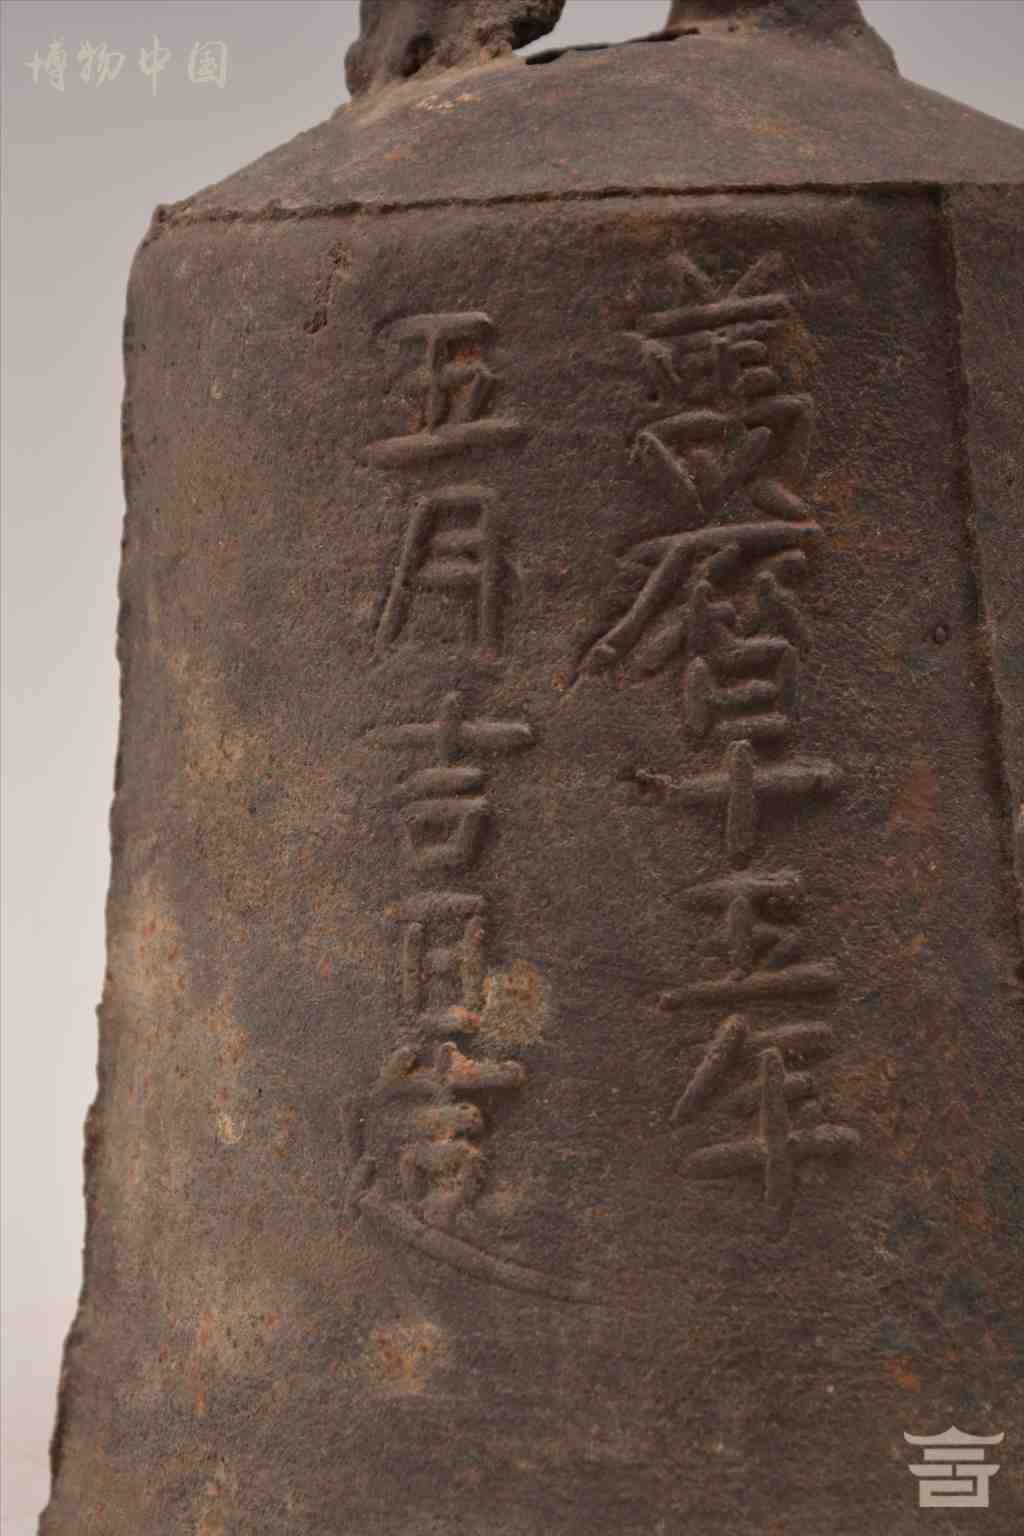 博物中国
萬曆十五年
五月吉日造